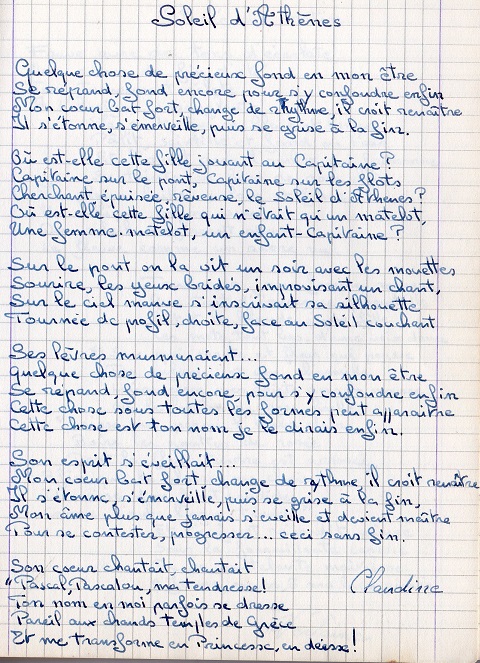 Soleil d'Athènes
Quelque chose de précieux fond en mon être
Se répand, fond encore pour s'y confondre enfin
Mon coeur bat fort, change de rythme, il croit renaître
Il s'étonne, s'émerveille, puis se grise à la fin.
Où est-elle cette fille jouant au Capitaine?
Capitaine sur le pont, Capitaine sur les flots
Cherchant épuisée, rêveuse, le Soleil d'Athènes?
Où est-elle cette fille qui n'était qu'un matelot,
Une femme-matelot, un enfant-Capitaine?
Sur le pont on la vit un soir avec les mouettes
Sourire, les yeux bridés, improvisant un chant,
Sur le ciel mauve s'inscrivait sa silhouette
Tournée de profil, droite, face au Soleil couchant
Ses lèvres murmuraient...
Quelque chose de précieux fond en mon être
Se répand, fond encore, pour s'y confondre enfin
Cette chose sous toutes les formes peut apparaître
Cette chose est ton nom je le dirais enfin.
Son esprit s'éveillait...
Mon coeur bat fort, change de rythme, il croit renaître
Il s'étonne, s'émerveille, puis se grise à la fin,
Mon âme plus que jamais s'éveille et devient maître
Pour se contester, progresser... ceci sans fin.
Son coeur chantait, chantait
"Pascal, Pascalou, ma tendresse!
Claudine
Ton nom en moi parfois se dresse
Pareil aux grands temples de Grèce
Et me transforme en Princesse, en déesse!